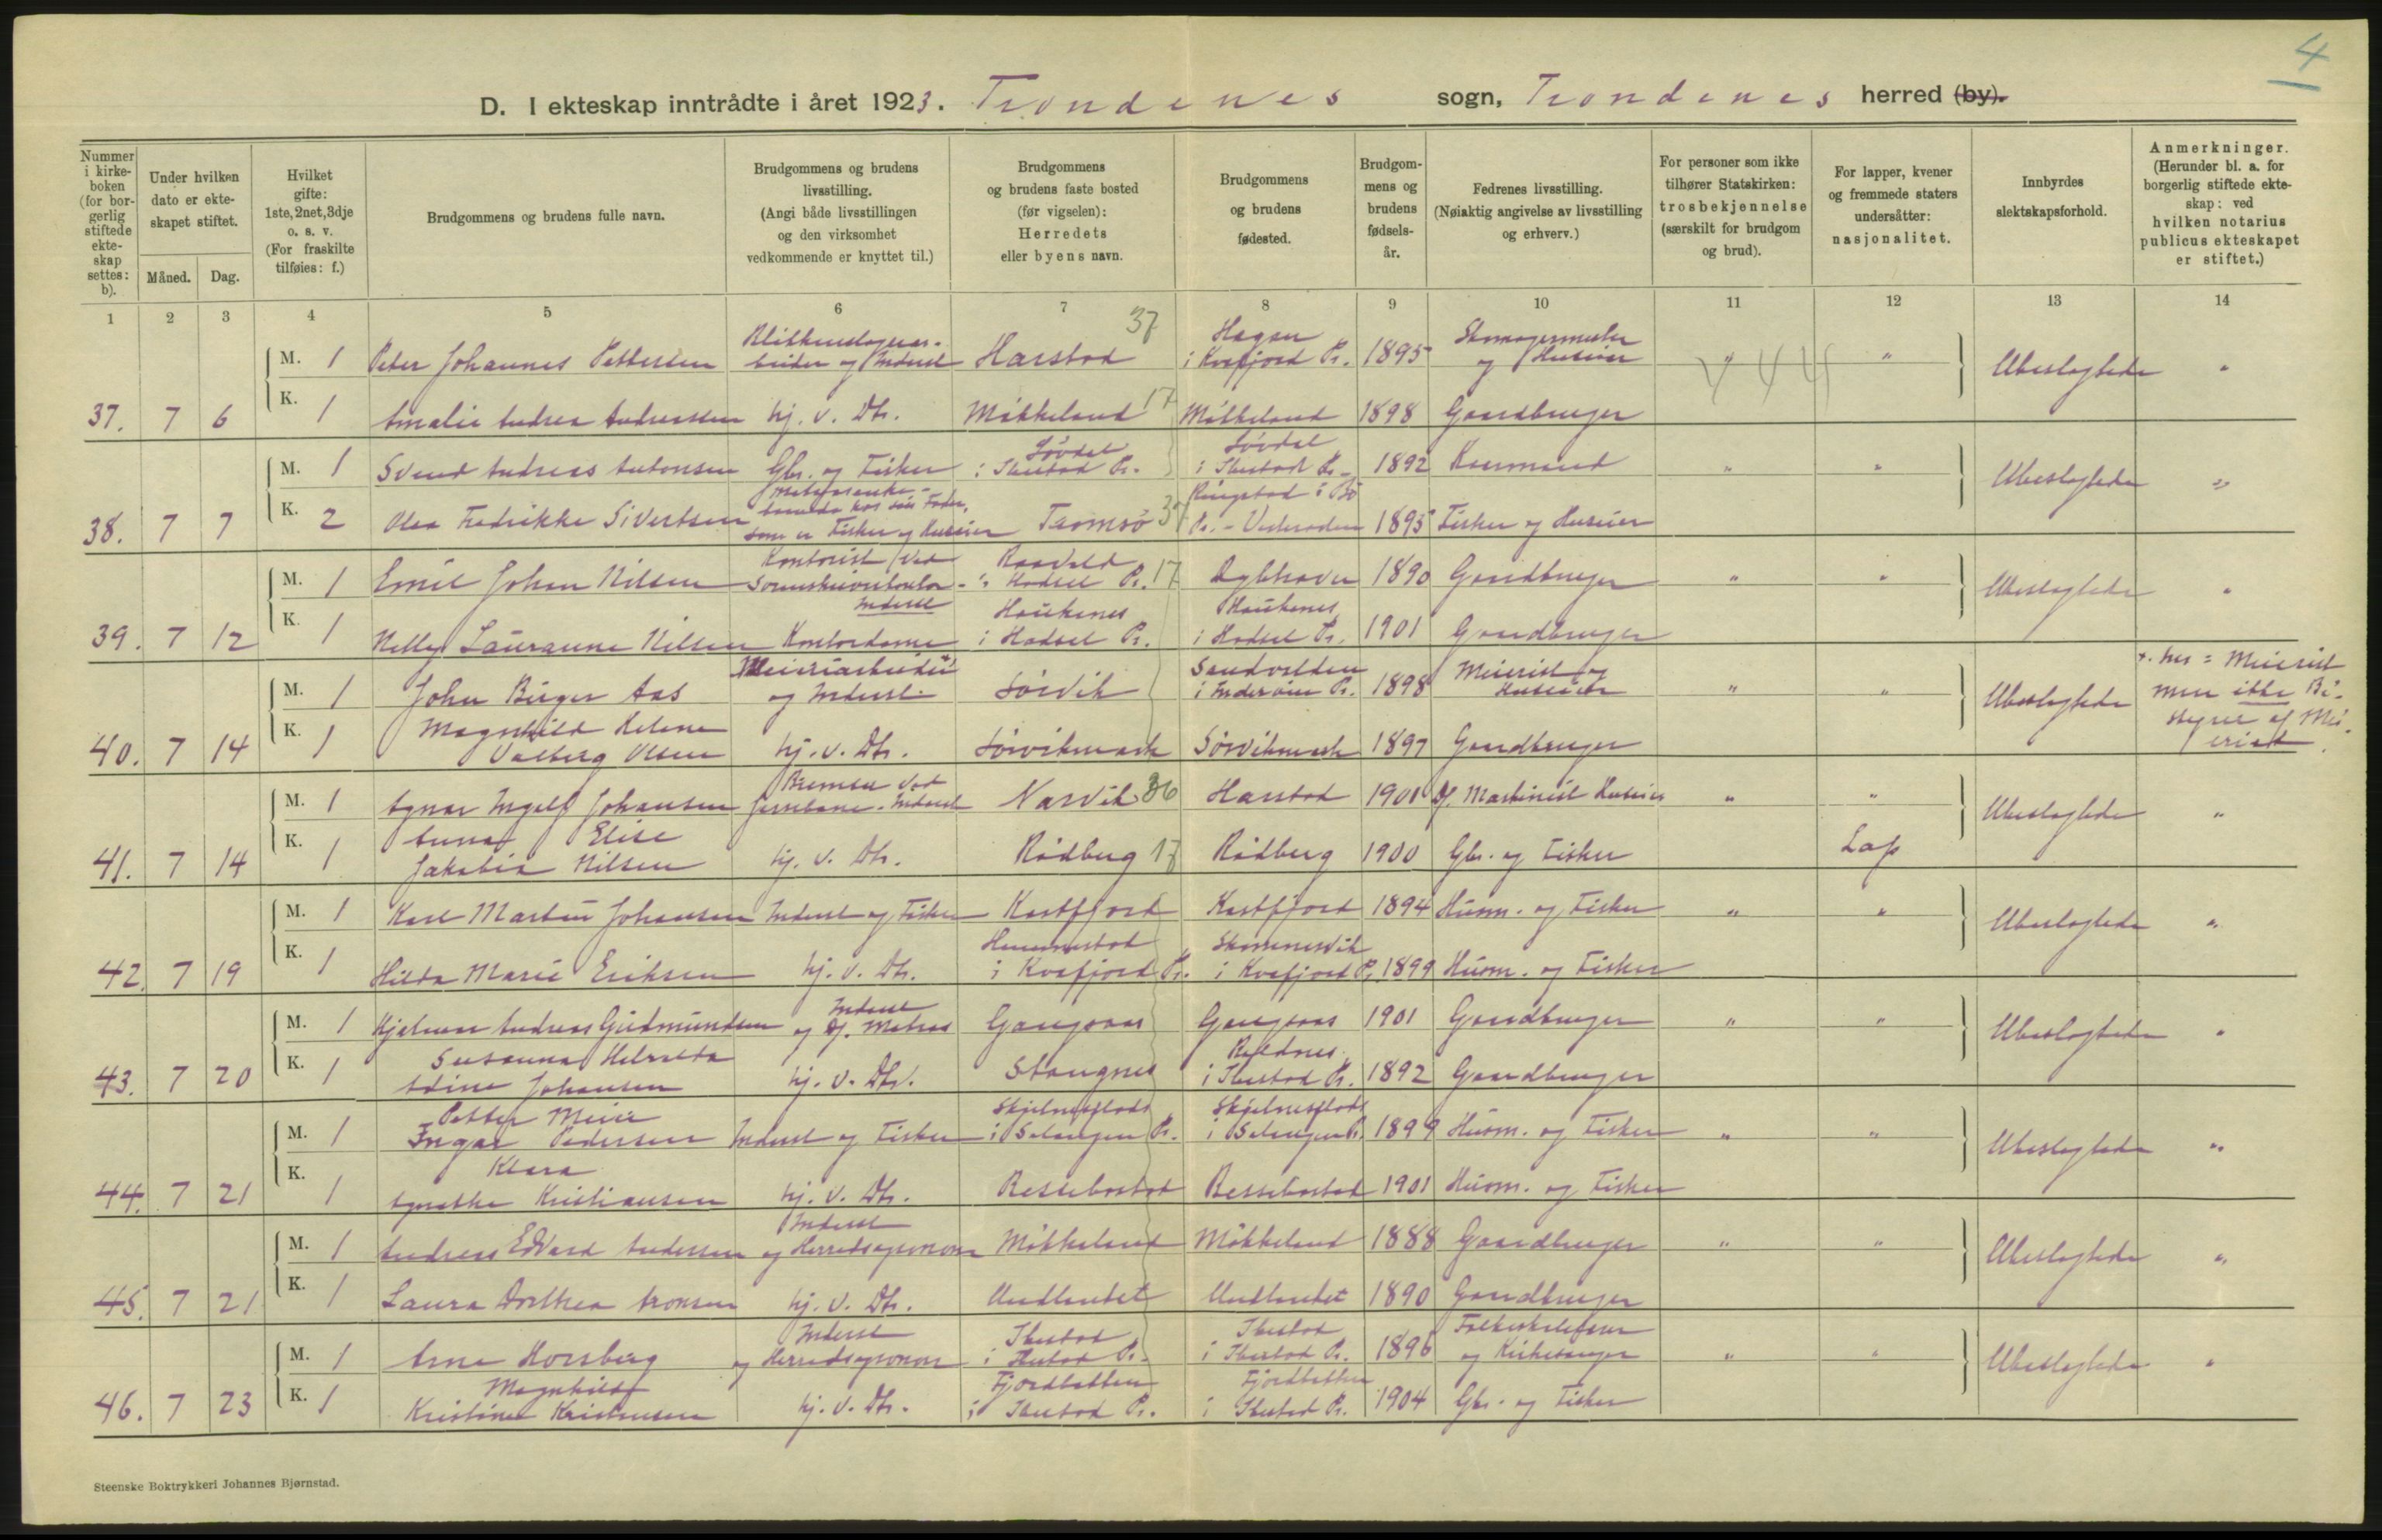 4
D. I ekteskap inntrådte i året 1923. Trondenes sogn, Trondenes herred (by).
Nummer i kirke-boken (for bor-gerlig stiftede ekte-skap settes: b).
Under hvilken dato er ekte-skapet stiftet.
Måned. Dag.
Hvilket gifte: 1ste, 2net, 3dje o. s. v. (For fraskilte tilføies: f.)
Brudgommens og brudens fulle navn.
Brudgommens og brudens livsstilling. (Angi både livsstillingen og den virksomhet vedkommende er knyttet til.)
Brudgommens og brudens faste bosted (før vigselen): Herredets eller byens navn.
Brudgommens og brudens fødested.
Brudgom-mens og brudens fødsels-år.
Fedrenes livsstilling. (Nøiaktig angivelse av livsstilling og erhverv.)
For personer som ikke tilhører Statskirken: trosbekjennelse (særskilt for brudgom og brud).
For lapper, kvener og fremmede staters undersåtter: nasjonalitet.
Innbyrdes slektskapsforhold.
Anmerkninger. (Herunder bl. a. for borgerlig stiftede ekte-skap: ved hvilken notarius publicus ekteskapet er stiftet.)
1 2 3 4 5 6 7 8 9 10 11 12 13 14
M. 1 Peter Johannes Pettersen og Inderst Harstad 37 Hagan i Kvæfjord Pr. 1895 Skomagermester og Huseier " " Ubeslegtede "
37. 7 6 K. 1 Amalie Andrea Andreassen hj. v. Dtr. Møkkeland 17 Møkkeland 1898 Gaardbruger
M. 1 Svend Andreas Antonsen Gbr. og Fisker Løvdal i Ibestad Pr. Løvdal i Ibestad Pr. 1892 " " Ubeslegtede "
38. 7 7 K. 2 Olea Fredrikke Sivertsen hos sin Fader, som er Fisker og Huseier Tromsø 37 Ringstad i Bø Pr. - Vesteraalen 1895 Fisker og Huseier
M. 1 Emil Johan Nilsen Kontorist ved Sorenskriverkontor - Inderst i Hadsel Pr. 17 1890 Gaardbruger " " Ubeslegtede "
39. 7 12 K. 1 Nelly Lauranne Nilsen Kontordame Haukenes i Hadsel Pr. Haukenes i Hadsel Pr. 1901 Gaardbruger
M. 1 John Birger Aas Meieriarbeider og Inderst Sørvik Sandvolden i Inderøen Pr. 1898 Meierist og Huseier " " Ubeslegtede
40. 7 14 K. 1 Magnhild Helene Valborg Olsen hj. v. Dtr. Sørvikmark Sørvikmark 1897 Gaardbruger
M. 1 Agnar Ingolf Johansen Bremser ved Jernbane. Inderst Narvik 36 Harstad 1901 Df. Maskinist Huseier " " Ubeslegtede "
41. 7 14 K. 1 Anna Elise Jakobia Nilsen hj. v. Dtr. Rødberg 17 Rødberg 1900 Gbr. og Fisker Lap
M. 1 Karl Martin Johansen Inderst og Fisker Kastfjord Kastfjord 1894 Husm. og Fisker " " Ubeslegtede "
42. 7 19 K. 1 Hilda Marie Eriksen hj. v. Dtr. Hemmestad i Kvæfjord Pr. i Kvæfjord Pr. 1899 Husm. og Fisker
M. 1 Hjalmar Andreas Gudmundsen Inderst og Df. Matros Gangsaas Gangsaas 1901 Gaardbruger " " Ubeslegtede "
43. 7 20 K. 1 Susanna Adina Johansen hj. v. Dtr. Stangnes i Ibestad Pr. 1892 Gaardbruger
M. 1 Petter Meier Ingar Pedersen Inderst og Fisker i Salangen Pr. i Salangen Pr. 1899 Husm. og Fisker " " Ubeslegtede "
44. 7 21 K. 1 Klara Agnethe Kristiansen hj. v. Dtr. Bessebostad Bessebostad 1901 Husm. og Fisker
M. 1 Andreas Edvard Andersen Inderst og Herredsagronom Møkkeland Møkkeland 1888 Gaardbruger " " Ubeslegtede "
45. 7 21 K. 1 Laura Dorthea Aronsen hj. v. Dtr. Undlandet Undlandet 1890 Gaardbruger
M. 1 Arne Horsberg Inderst og Herredsagronom Ibestad i Ibestad Pr. Ibestad i Ibestad Pr. 1896 og Kirkesanger " " Ubeslegtede "
46. 7 23 K. 1 Magnhild Kristine Kristensen hj. v. Dtr. Fjordbotten i Ibestad Pr. Fjordbotten i Ibestad Pr. 1904 Gbr. og Fisker
Steenske Boktrykkeri Johannes Bjørnstad.